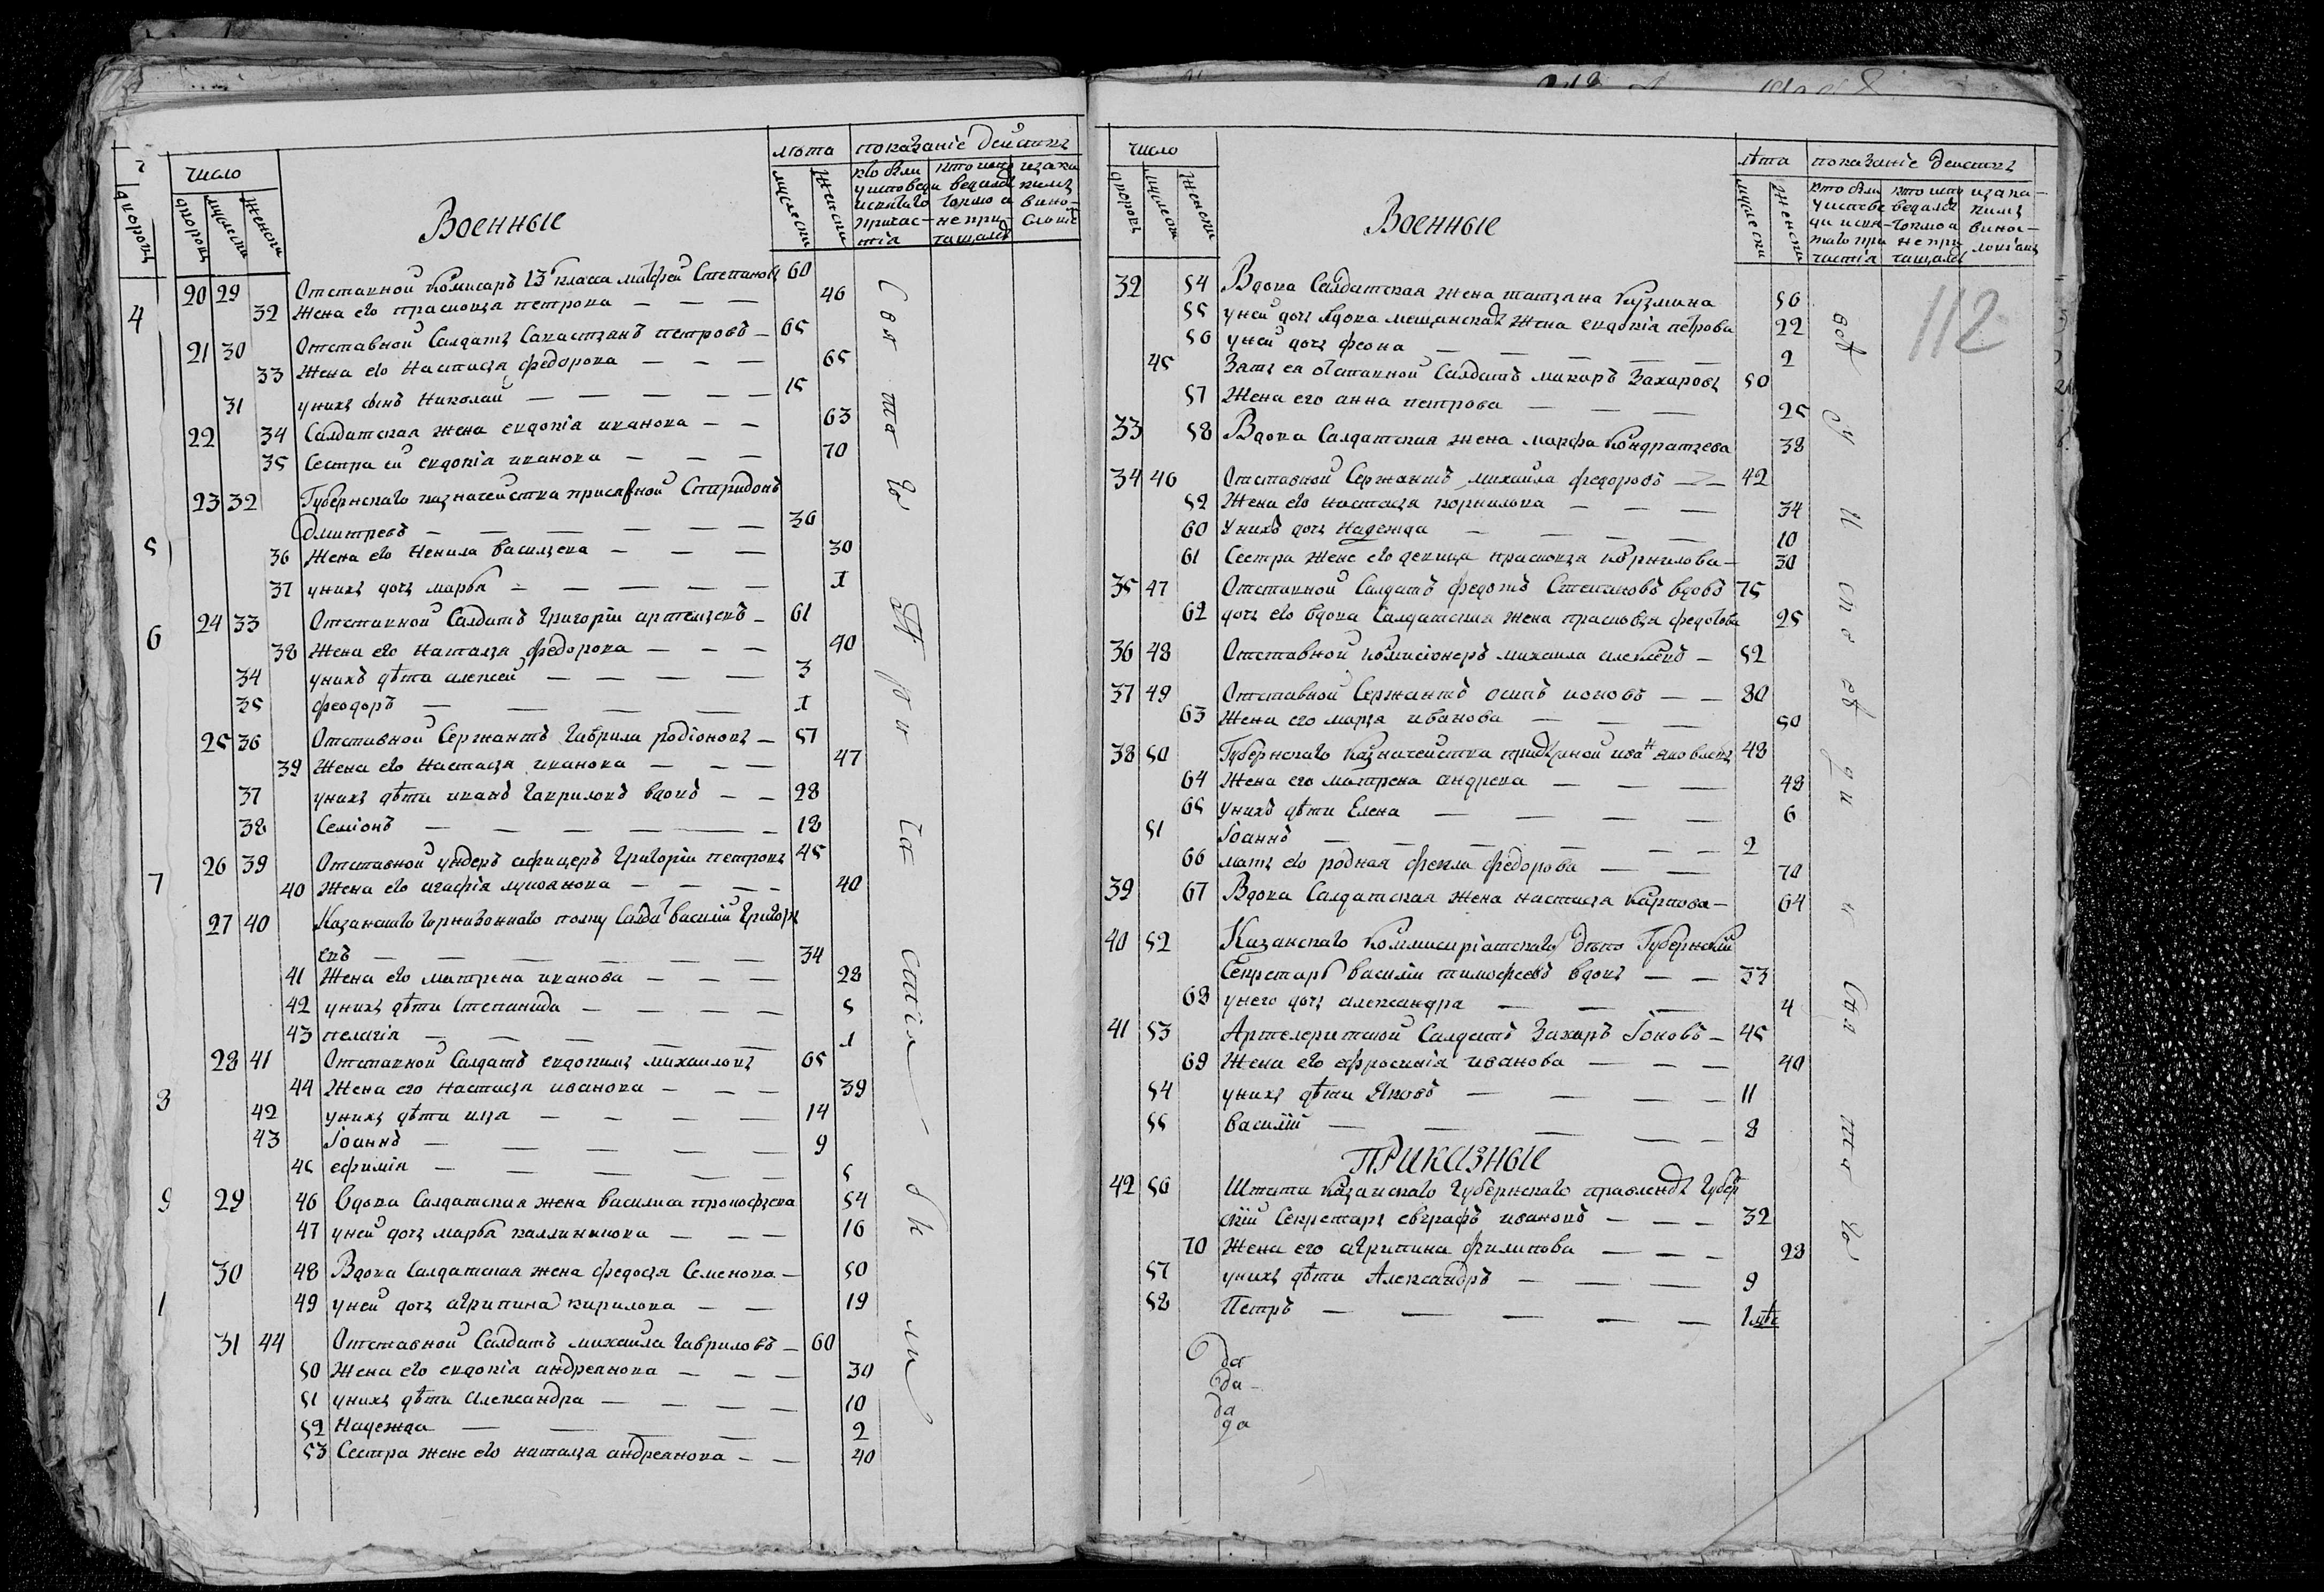 число
лѣта показаніе деистих
дворовъ
мужеска
женска
Военные
мужеска
женска
20 29 Отставной комисаръ 13 класа матфей Степановъ 60
32 Жена его прасковья петрова — — — 46
4
21 30 Отставной Салдатъ Савастьянъ петровъ — 65
33 Жена его Настасья федорова — — — 65
31 унихъ сынъ Николай — — — — — 15
22 34 Салдатская жена евдокіа иванова — — 63
35 Сестра ей евдокіа иванова — — — 70
23 32 Губернскаго казначейства присяжной Спиридонъ
Дмитревъ — — — — — — 36
5
36 Жена его Ненила васильева — — — 30
37 унихъ дочь марѳа — — — — — 1
24 33 Отставной Салдатъ Григоріи артемьевъ — 61
6
38 Жена его Наталья федорова — — — 40
34 унихъ дѣти алексей — — — — 3
35 феодоръ — — — — 1
25 36 Отставной Сержантъ Гаврила родіоновъ — 57
39 Жена его Настасья иванова — — — 47
37 унихъ дѣти иванъ Гавриловъ вдовъ — — 28
38 Семіонъ — — — — — — 18
26 39 Отставной ундеръ афицеръ Григоріи петровъ 45
7
40 Жена его агафіа лукоянова — — — — 40
27 40 Казанскаго горнизоннаго полку Салда василіи Григорь
евъ — — — — — — 34
41 Жена его матрена иванова — — — 28
42 унихъ дѣти Степанида — — — — 5
43 пелагіа — — — — — 1
28 41 Отставной Салдатъ евдокимъ михаиловъ 65
44 Жена его настасья иванова — — — 39
8
42 унихъ дѣти илья — — — — 14
43 Іоаннъ — — — — — 9
45 ефиміа — — — — 5
9 29 46 Вдова Салдатская жена василиса прокофьева 54
47 уней дочь марѳа каллиникова — — — 16
30 48 Вдова Салдатская жена федосья Семенова — 50
1
49 уней дочь агрипина кирилова — — 19
31 44 Отставной Салдатъ михаила Гавриловъ — 60
50 Жена его евдокіа андреянова — — — 30
51 унихъ дѣти Александра — — — — 10
52 Надежда — — — — 2
53 Сестра жене его наталья андреянова — — 40
число
лѣта показаніе деистих
дворовъ
мужеска
женска
Военные
мужеска
женска
112
32 54 Вдова Салдатская жена татьяна Кузмина 56
55 уней дочь вдова мещанская жена евдокіа петрова 22
56 уней дочь феона — — — — — 2
45 Зать ея отставной Салдатъ макаръ Захаровъ 50
57 Жена его анна петрова — — — 25
33 58 Вдова Салдатская жена марфа Кондратьева 38
34 46 Отставной Сержантъ михаила федоровъ — — 42
59 Жена его настасья корнилова — — — 34
60 Унихъ дочь Надежда — — — — 10
61 Сестра жене его девица прасковья корнилова — 30
35 47 Отставной Салдатъ федотъ Степановъ вдовъ 75
62 дочь его вдова Салдатская жена прасковья федотова 25
36 48 Отставной комисіонеръ михаила алексеевъ — 52
37 49 Отставной Сержантъ осипъ ионовъ — — 80
63 Жена его марья иванова — — — 50
38 50 Губернскаго Казначейства иванъ яковлевъ 48
64 Жена его матрена андреева — — — 48
65 унихъ дѣти Елена — — — — 6
51 Іоаннъ — — — — — 2
66 мать его родная фекла федорова — — 70
39 67 Вдова Салдатская жена настасья Карпова — 64
40 52 Казанскаго Коммисиріатскаго Депо Губернскій
Секретарь василіи тимофеевъ вдовъ — — 33
68 унего дочь александра — — — 4
41 53 Артелеритской Салдатъ Захаръ Іоновъ — 45
69 Жена его ефросиніа иванова — — — 40
54 унихъ дѣти Яковъ — — — — 11
55 василій — — — — — 8
ПРИКАЗНЫЕ
42 56 Штата казанскаго Губернскаго правленія Губер
скій Секретарь евграфъ ивановъ — — — 32
70 Жена его агрипина филипова — — — 28
57 унихъ дѣти Александръ — — — 9
58 Петръ — — — — — 1
да
да
да
да